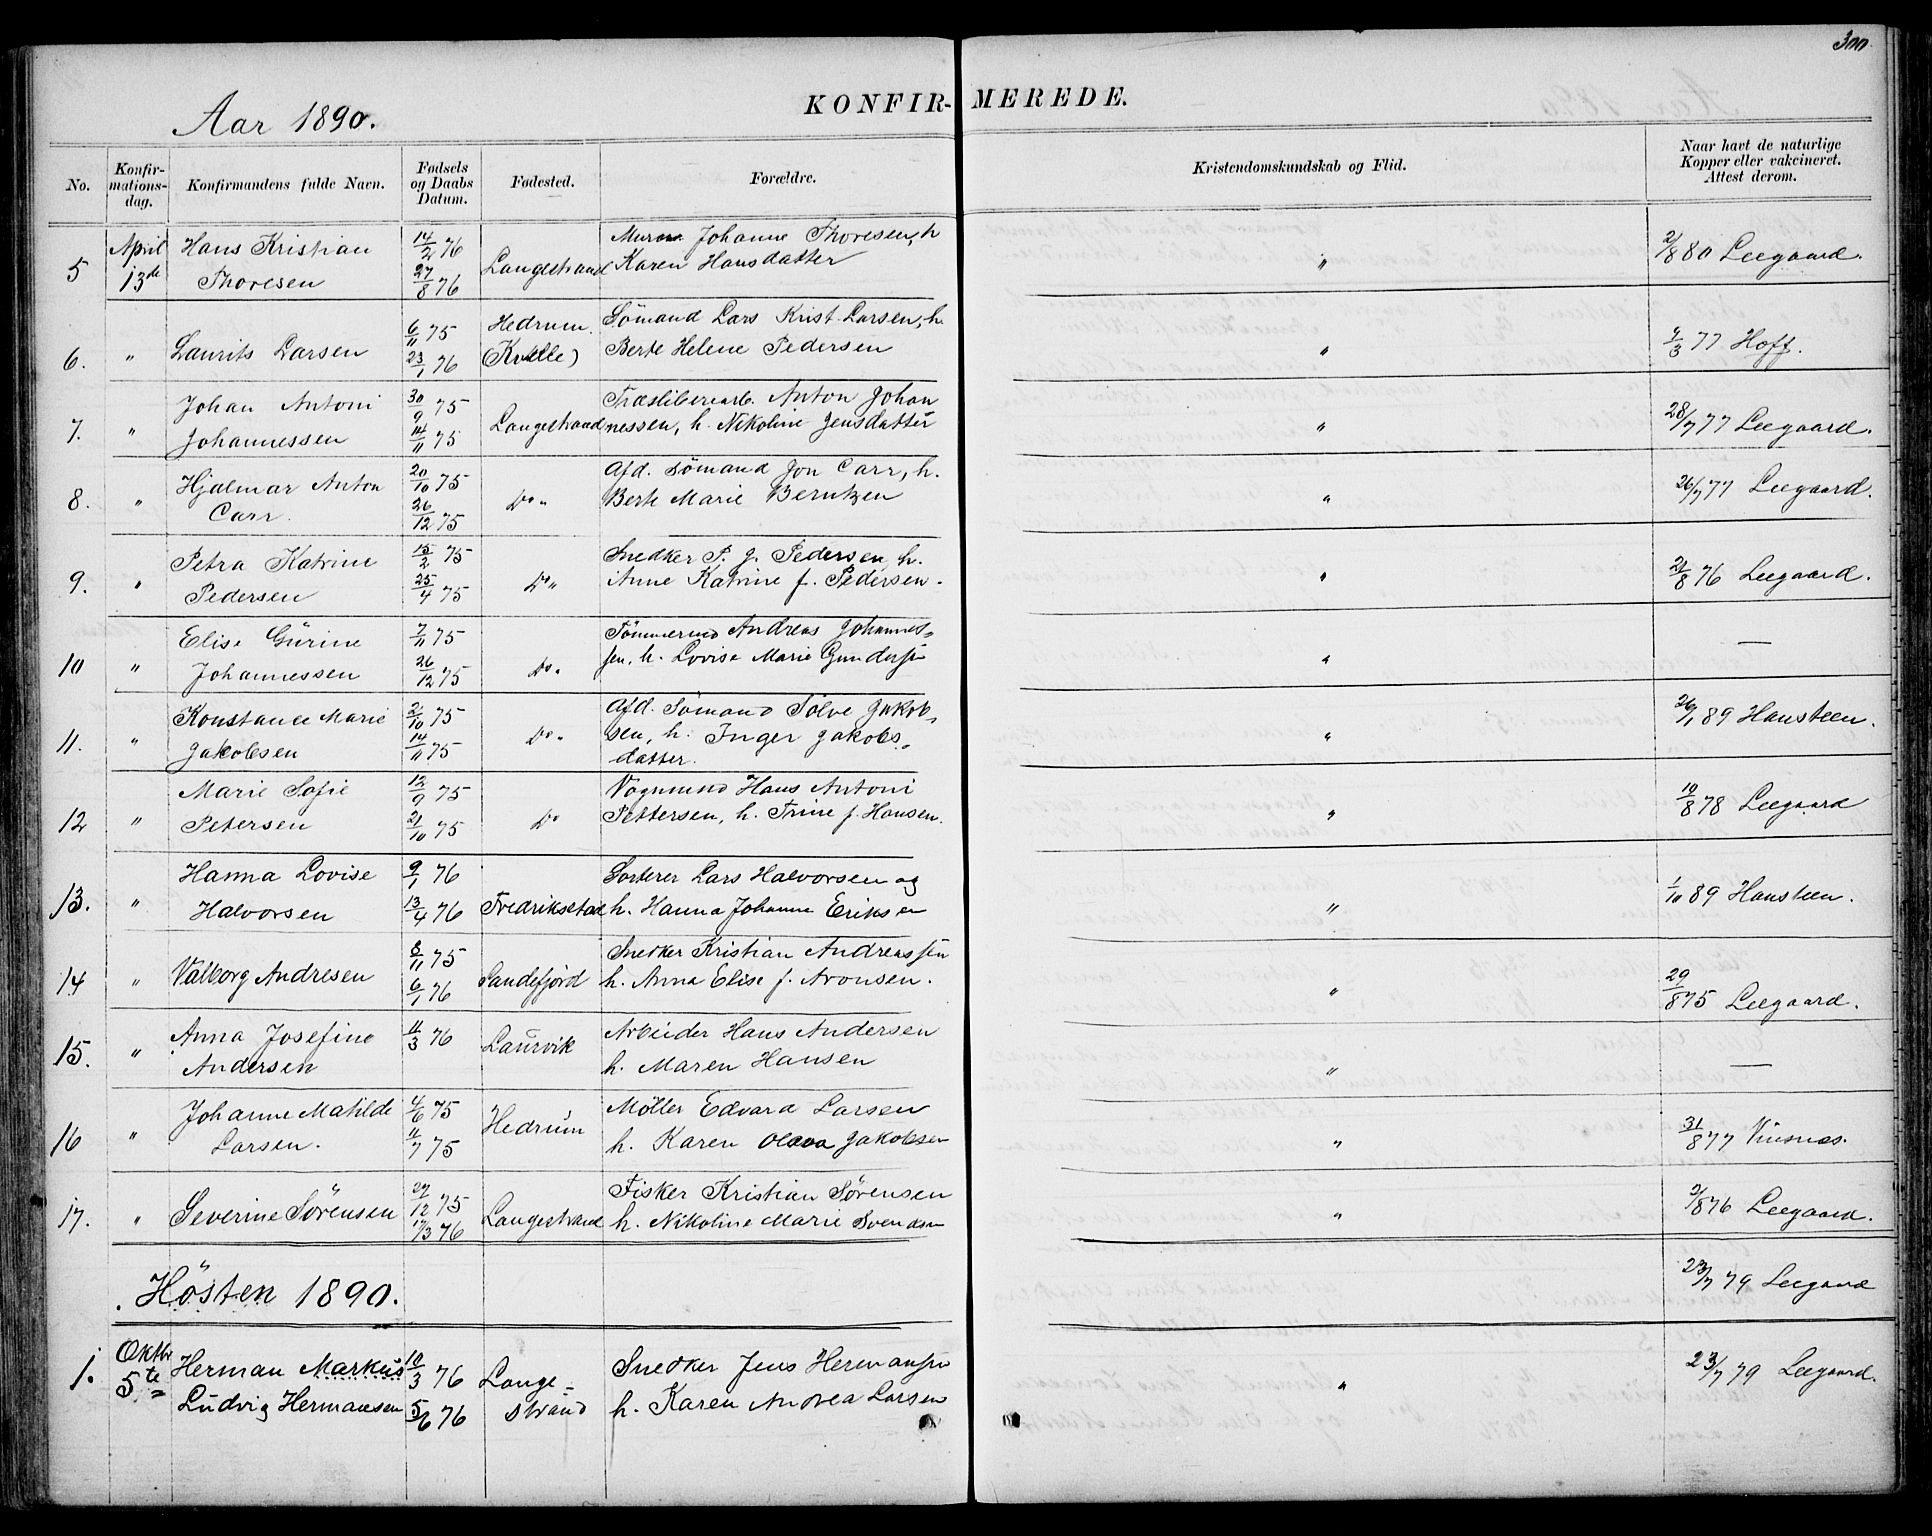 300
Aar 1890.
KONFIR- MEREDE.
No.
Konfir-
mations-
dag.
Konfirmandens fulde Navn.
Fødsels
og Daabs
Datum.
Fødested.
Forældre.
Kristendomskundskab og Flid.
Naar havt de naturlige
Kopper eller vakcineret.
Attest derom.
April Hans Kristian 14/2 76 Johanne Thoresen, h
5 13de Thoresen 27/8 76 Langestrand Karen Hansdatter " 2/8 80 Leegaard.
6/11 75 Hedrum. Sømand Lars Krist. Larsen, h.
6. " Laurits Larsen 23/1 76 (Kvelle) Berte Helene Pedersen " /3 77 Hoff.
Johan Antoni 30/9 75 Anton Johan
7. " Johannessen 14/11 75 Langestrand nessen, h. Nikoline Jensdatter " 28/7 77 Leegaard.
Hjalmar Anton 20/10 75 Afd. Sømand Jon Carr, h.
8. " Carr. 26/12 75 Do " Berte Marie Berntzen " 26/7 77 Leegaard.
Petra Katrine 15/2 75 Snedker P. J. Pedersen, h.
9. " Pedersen 25/4 75 Do " Anne Katrine f. Pedersen. " 21/8 76 Leegaard.
Elise Gürine 7/11 75 Tömmermd Andreas Johannes-
10 " Johannessen 26/12 75 Do " sen, h. Lovise Marie Gundersen " —
Konstance Marie 2/10 75 Afd. Sömand Sölve Jakob-
11. " Jakobsen 14/11 75 Do " sen, h. Inger Jakobs- " 26/1 89 Hansteen.
datter.
Marie Sofie 12/9 75 Vognmand Hans Antoni
12 " Petersen 21/10 75 Do Pettersen, h. Trine f. Hansen. " 10/8 78 Leegaard
Hanna Lovise 9/1 76 Sorterer Lars Halvorsen og
13. " Halvorsen 13/4 76 Fredrikstad h. Hanna Johanne Eriksen " 1/10 89 Hansteen.
8/11 75 Snedker Kristian Andreassen
14 " Valborg Andresen 6/1 76 Sandefjord h. Anna Elise f. Aronsen. " 29/8 75 Leegaard.
Anna Josefine 11/3 76 Arbeider Hans Andersen
15. " Andersen Laurvik h. Maren Hansen " —
Johanne Matilde 4/6 75 Møller Edvard Larsen
16 " Larsen. 11/7 75 Hedrüm h. Karen Olava Jakobsen " 31/8 77 Vinsnæs.
27/12 75 Fisker Kristian Sørensen
17. " Severine Sørensen 17/3 76 Langestrand h. Nikoline Marie Svendsen " 2/8 76 Leegaard.
Hösten 1890. 23/7 79 Leegaard
Oktbr Herman Markus 10/3 76 Lange- Snedker Jens Hermansen
1. 5te Ludvig Hermansen 5/6 76 strand h. Karen Andrea Larsen " 23/7 79 Leegaard.